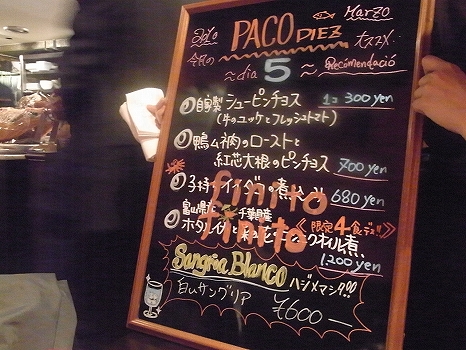 Solo PACO DIEZ Marzo
今宵の オススメ
~ dia 5 ~ Recomendació
自家製シューピンチョス 1コ 300 yen
(牛のユッケとフレッシュトマト)
鴨ムネ肉のローストと
紅芯大根のピンチョス 700 yen
子持イイダコの煮込み 680 yen
finito
富山県産 千葉県産 《限定4食デス!!》
finito
ホタルイカと オイル煮、
1,200 yen
Sangria Blanco ハジメマシタ!!
白いサングリア ¥600—